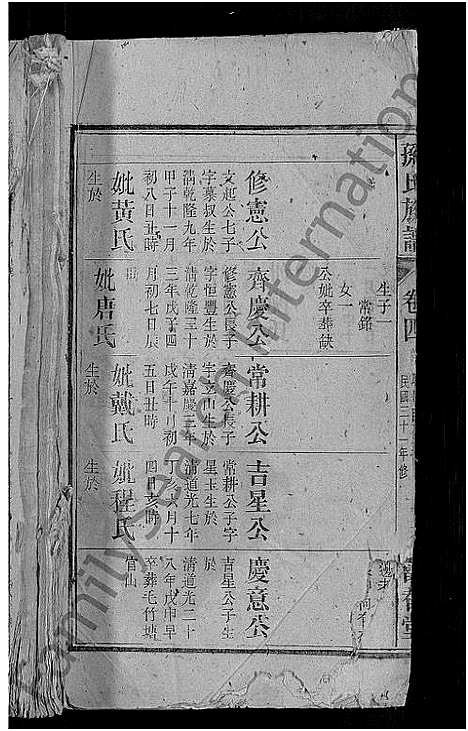 孫氏族譜
卷四
民國三十一年修
生子一
常銘
女一
公妣卒葬缺
修憲公
文起公七子
字慕叔生於
清乾隆九年
甲子十一月
初八日丑時
妣黃氏
生於
齊慶公
修憲公長子
字恒豐生於
清乾隆三十
三年戊子四
月初七日辰
時
妣唐氏
常耕公
齊慶公長子
字立山生於
清嘉慶三年
戊午十月初
五日丑時
妣戴氏
生於
吉星公
常耕公子字
星玉生於
清道光七年
丁亥六月十
四日亥時
妣程氏
生於
慶意公
吉星公子生
於
清道光二十
八年戊申早
卒葬毛竹塘
官山
FamilySearch International